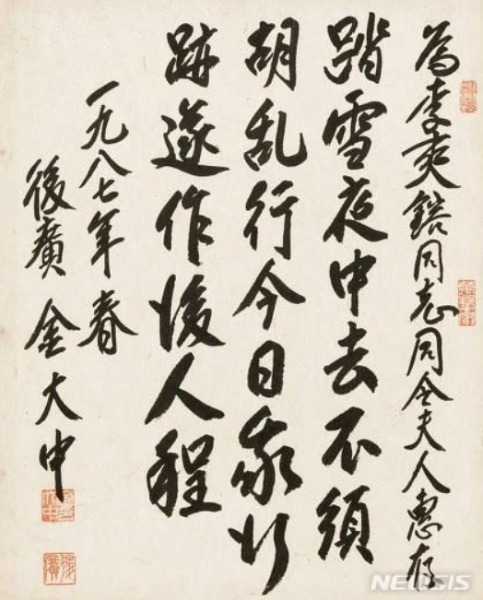 為李奭鎔同志同令夫人惠存
踏雪夜中去不須
胡乱行今日我行
跡遂作後人程
一九八七年春
後廣 金大中
NEWSIS